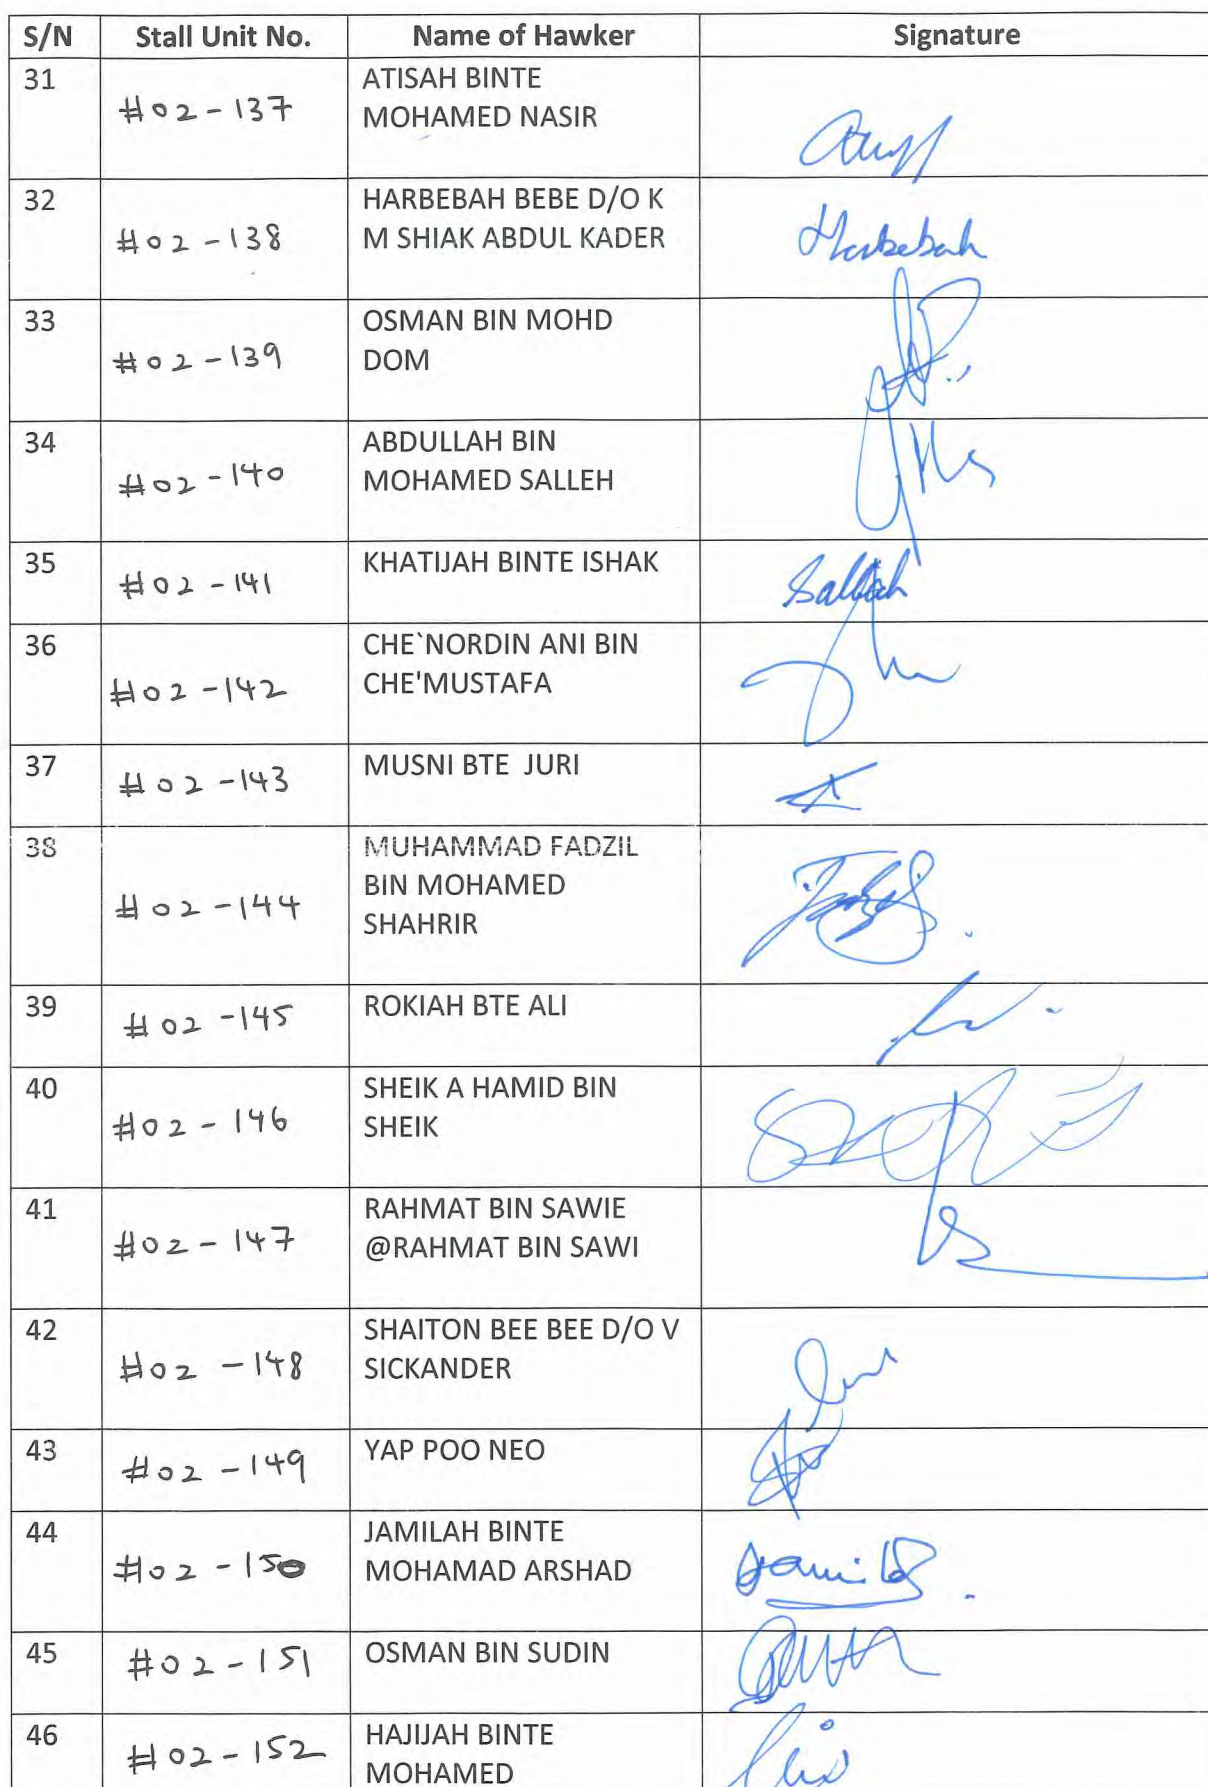 S/N Stall Unit No. Name of Hawker Signature
31 #02-137 ATISAH BINTE
MOHAMED NASIR
32 #02-138 HARBEBAH BEBE D/O K
M SHIAK ABDUL KADER
Harbebah
33 #02-139 OSMAN BIN MOHD
DOM
34 #02-140 ABDULLAH BIN
MOHAMED SALLEH
35 #02-141 KHATIJAH BINTE ISHAK
36 #02-142 CHE`NORDIN ANI BIN
CHE'MUSTAFA
37 #02-143 MUSNI BTE JURI
38 #02-144 MUHAMMAD FADZIL
BIN MOHAMED
SHAHRIR
39 #02-145 ROKIAH BTE ALI
40 #02-146 SHEIK A HAMID BIN
SHEIK
41 #02-147 RAHMAT BIN SAWIE
@RAHMAT BIN SAWI
42 #02-148 SHAITON BEE BEE D/O V
SICKANDER
43 #02-149 YAP POO NEO
44 #02-150 JAMILAH BINTE
MOHAMAD ARSHAD
45 #02-151 OSMAN BIN SUDIN
46 #02-152 HAJIJAH BINTE
MOHAMED